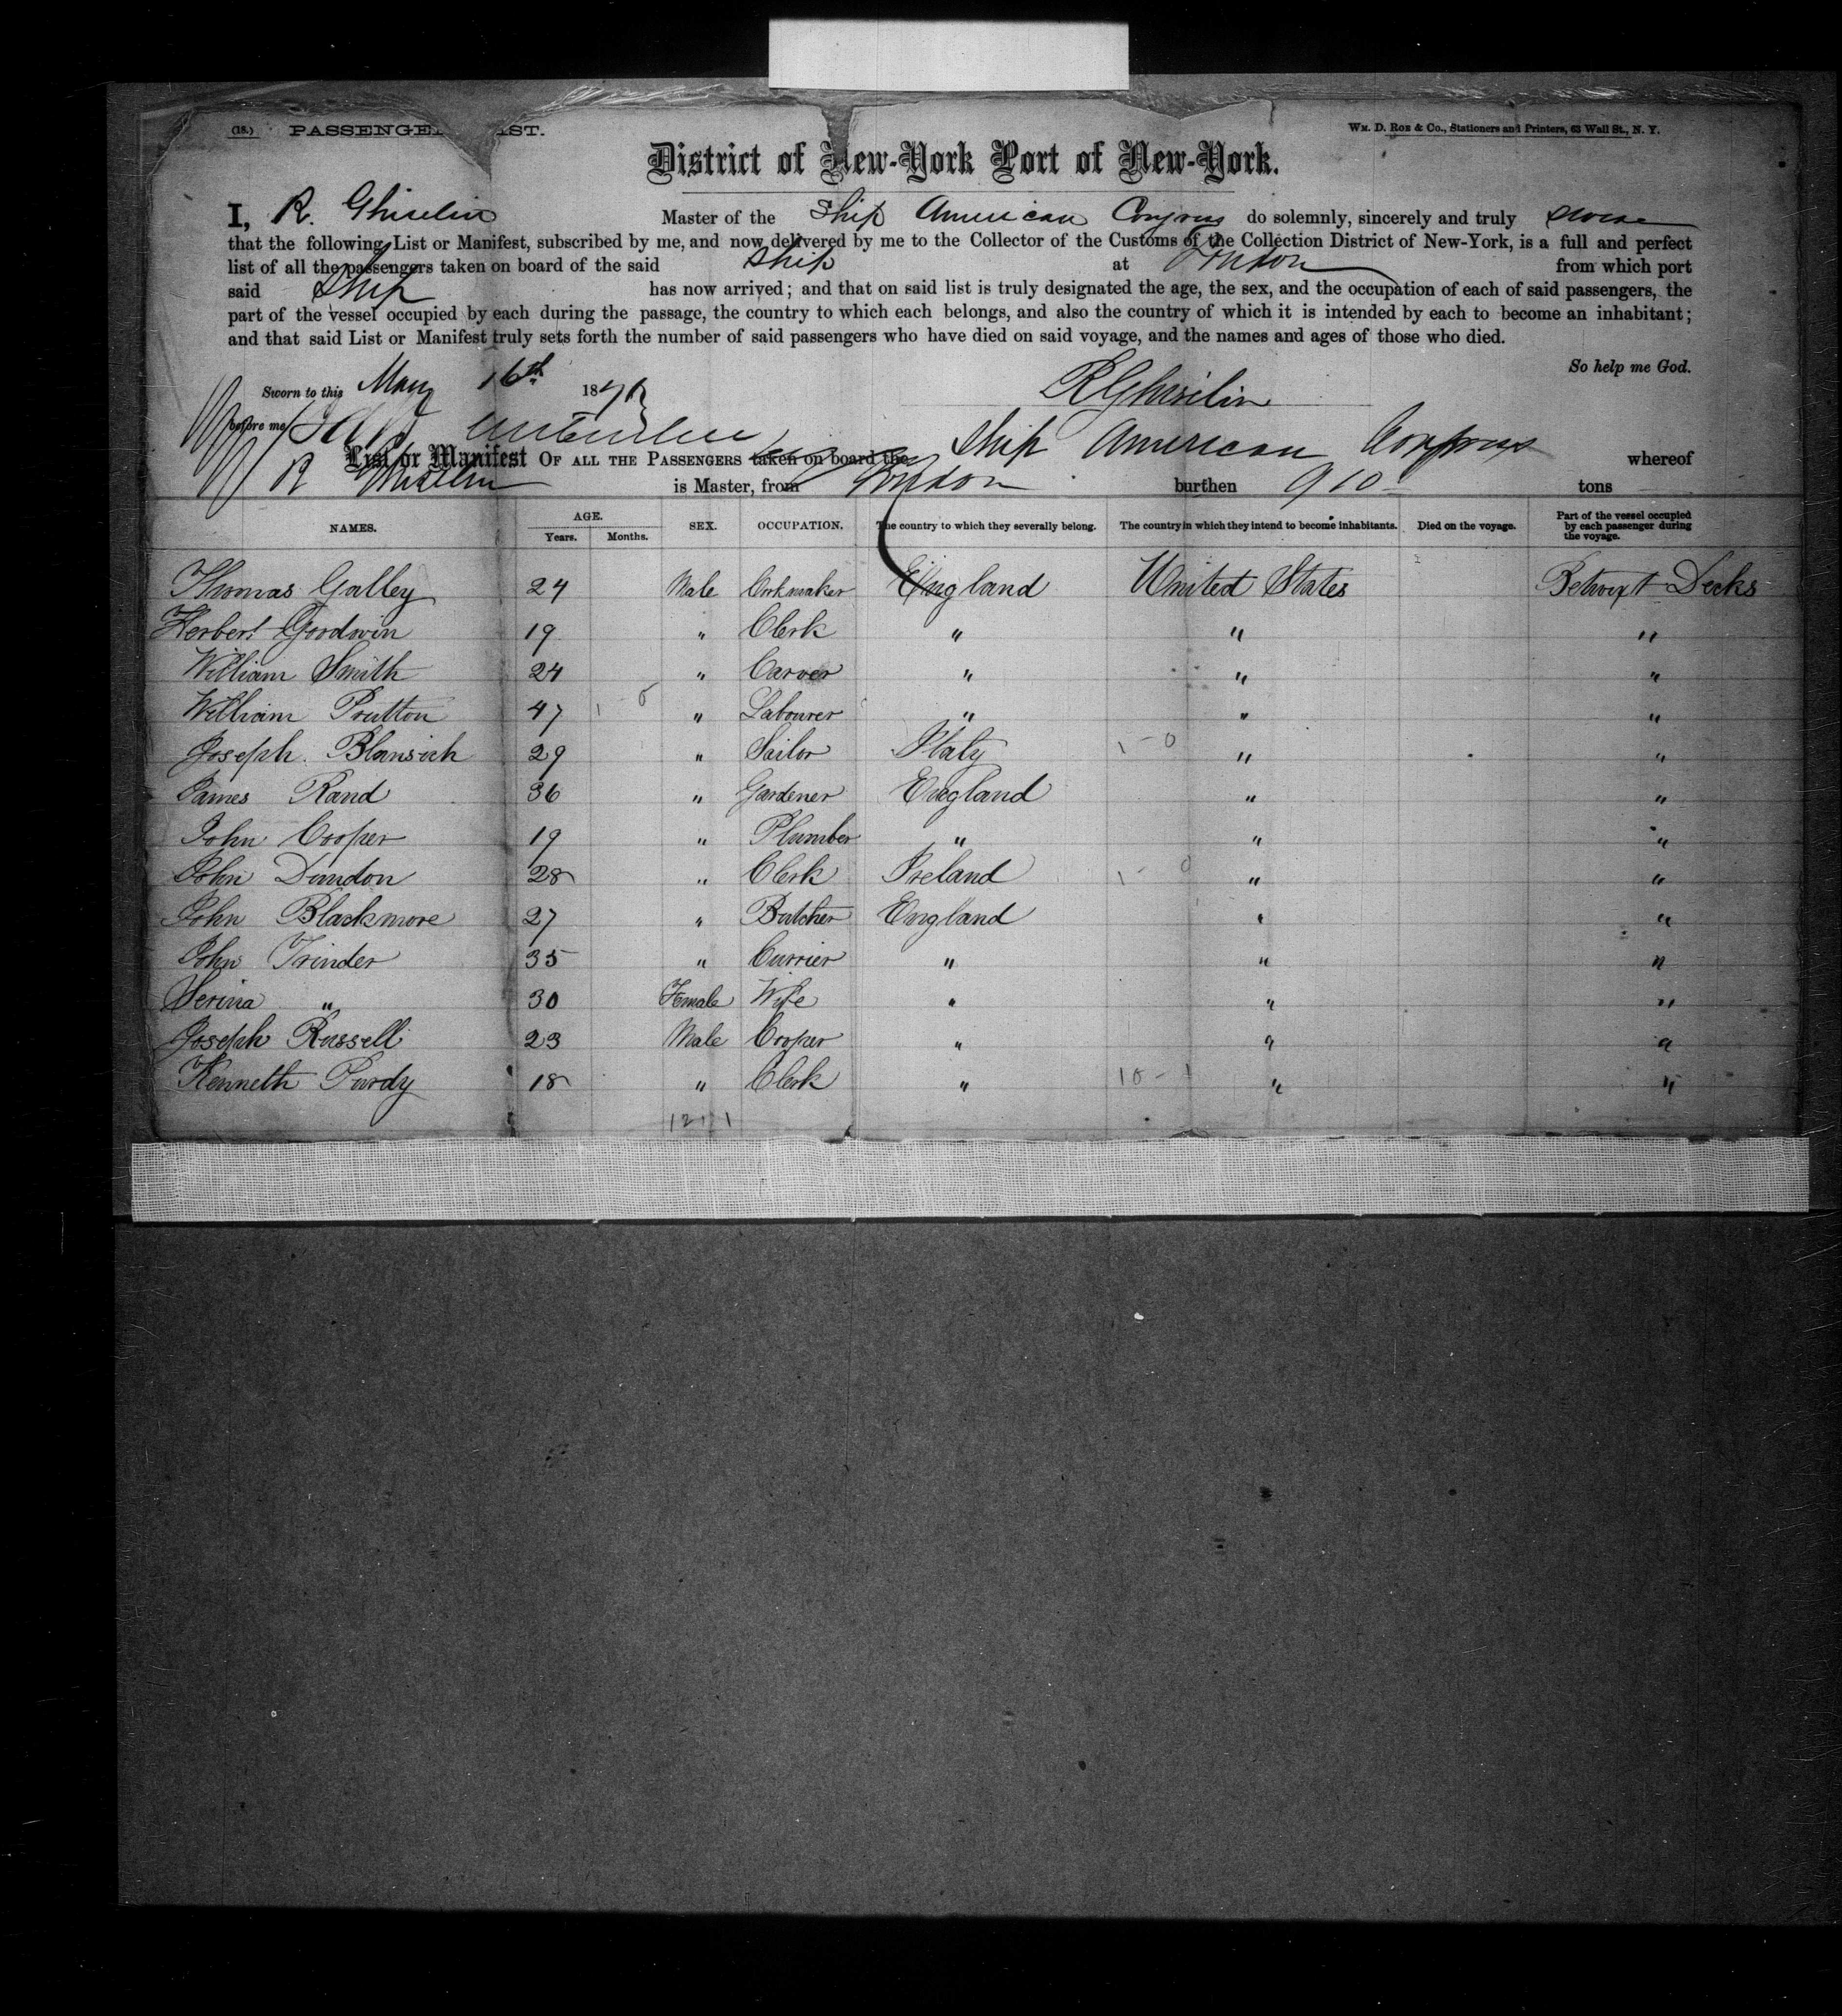 (18.) PASSENGER LIST. Wm. D. Roe & Co., Stationers and Printers, 63 Wall St., N. Y.
District of New-York Port of New-York.
I, R. Ghiselin Master of the Ship American Congress do solemnly, sincerely and truly swear
that the following List or Manifest, subscribed by me, and now delivered by me to the Collector of the Customs of the Collection District of New-York, is a full and perfect
list of all the passengers taken on board of the said Ship at London from which port
said Ship has now arrived; and that on said list is truly designated the age, the sex, and the occupation of each of said passengers, the
part of the vessel occupied by each during the passage, the country to which each belongs, and also the country of which it is intended by each to become an inhabitant;
and that said List or Manifest truly sets forth the number of said passengers who have died on said voyage, and the names and ages of those who died.
So help me God.
Sworn to this May 16th 187
R Ghiselin
before me
List or Manifest OF ALL THE PASSENGERS taken on board the Ship American Congress whereof
R Ghiselin is Master, from London burthen 910 tons
NAMES. AGE. Years. Months. SEX. OCCUPATION. The country to which they severally belong. The country in which they intend to become inhabitants. Died on the voyage. Part of the vessel occupied by each passenger during the voyage.
Thomas Galley 24 Male England United States Betwixt Decks
Herbert Goodwin 19 " Clerk " " "
William Smith 24 " Carver " " "
William Prutton 47 1 - 0 " Labourer " " "
Joseph. Blansich 29 " Sailor Italy 1 - 0 " "
James Rand 36 " Gardener England " "
John Cooper 19 " Plumber " " "
John Dundon 28 " Clerk Ireland 1 - 0 " "
John Blackmore 27 " Butcher England " "
John Trinder 35 " Currier " " "
Serina " 30 Female Wife " " "
Joseph Russell 23 Male Cooper " " "
Kenneth Purdy 18 " Clerk " 10 - 1 " "
12 1